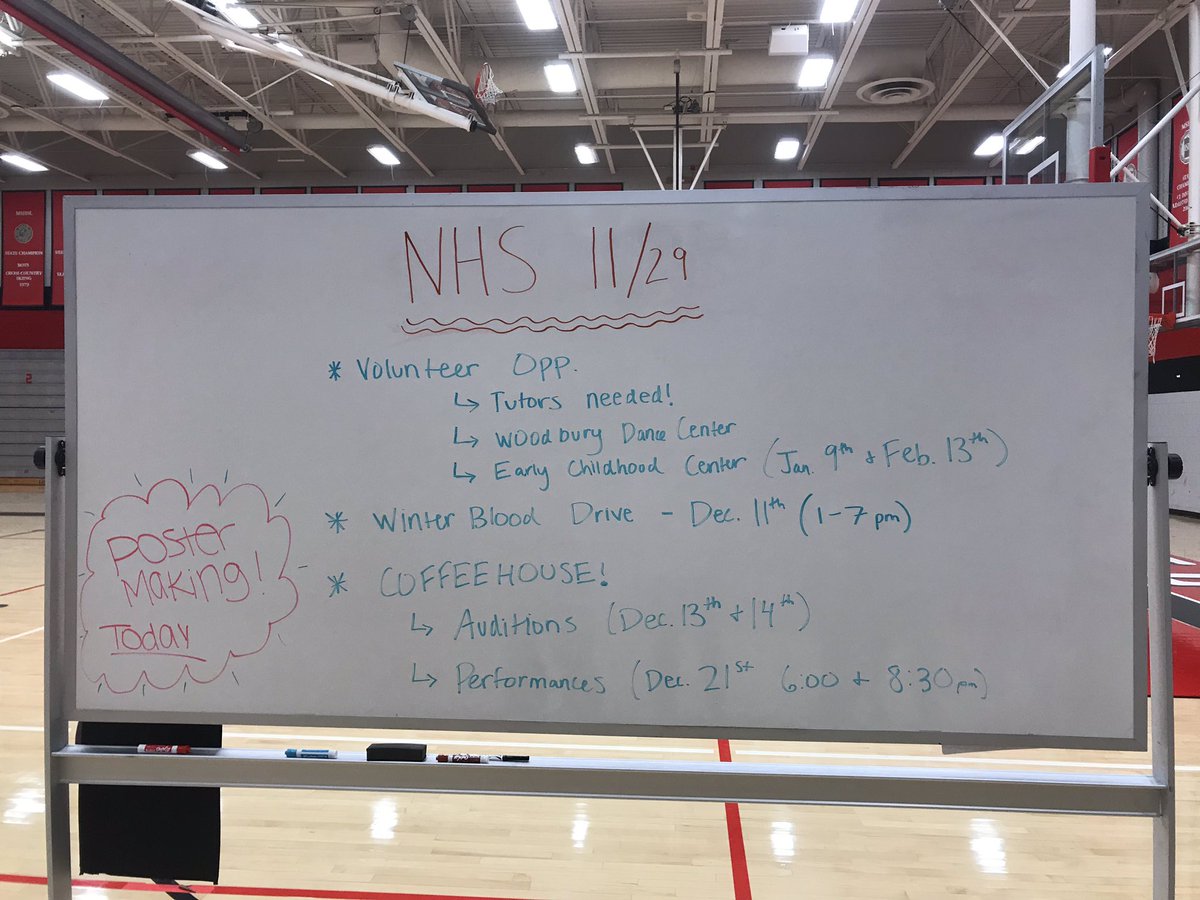 NHS 11/29
* Volunteer Opp.
↳ Tutors needed!
↳ Woodbury Dance Center
↳ Early Childhood Center (Jan. 9th + Feb. 13th)
* Winter Blood Drive - Dec. 11th (1-7 pm)
* COFFEEHOUSE!
↳ Auditions (Dec. 13th + 14th)
↳ Performances (Dec. 21st 6:00 + 8:30pm)
Poster
Making!
Today
MSHSL
STATE CHAMPION
BOYS
CROSS-COUNTRY
SKIING